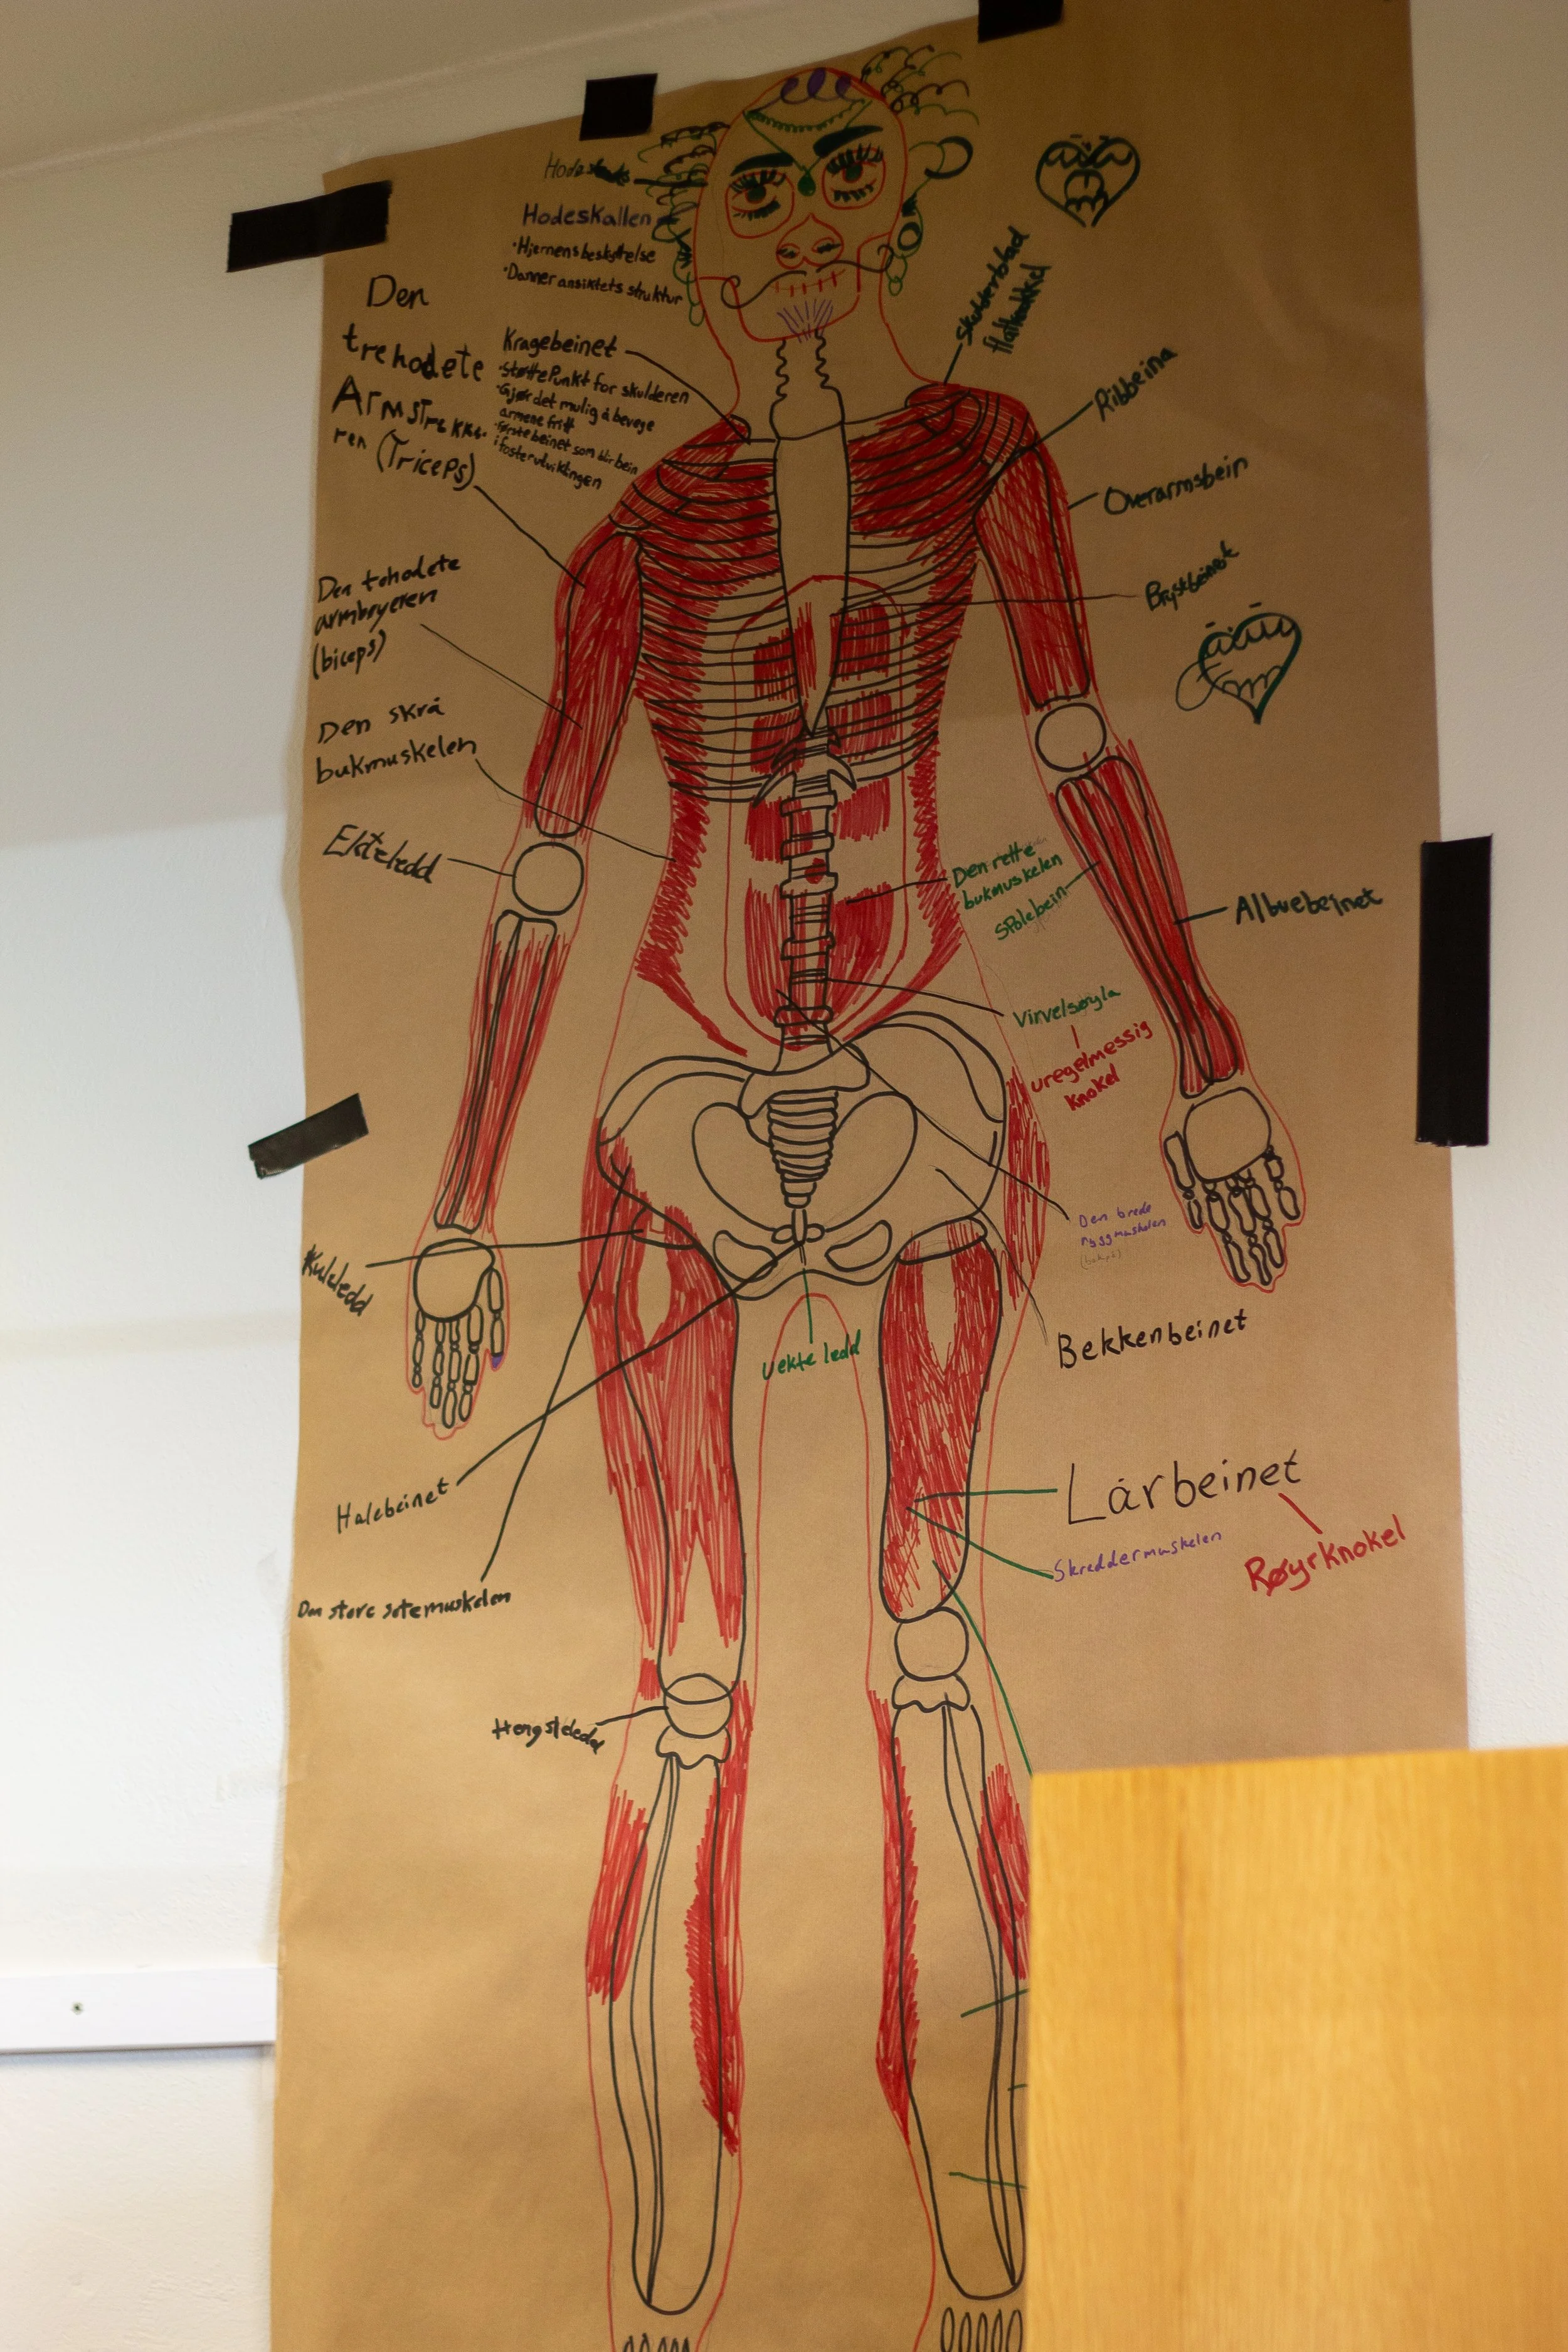 Hodeskallen
•Hjernens beskyttelse
•Danner ansiktets struktur
Kragebeinet
•Støttepunkt for skulderen
•Gjør det mulig å bevege
armene fritt
•første beinet som blir bein
i fosterutviklingen
Den
trehodete
Armstrekke-
ren (Triceps)
Den tohodete
armbøyeren
(biceps)
Den skrå
bukmuskelen
Ekteledd
Kuleledd
Halebeinet
Den store setemuskelen
Hengsleledd
Skulderblad
Ribbeina
Overarmsbein
Brystbeinet
Den rette
bukmuskelen
Spolebein
Albuebeinet
Virvelsøyla
uregelmessig
knokel
Den brede
ryggmuskelen
Bekkenbeinet
vekte ledd
Lårbeinet
Skreddermuskelen
Røyrknokel